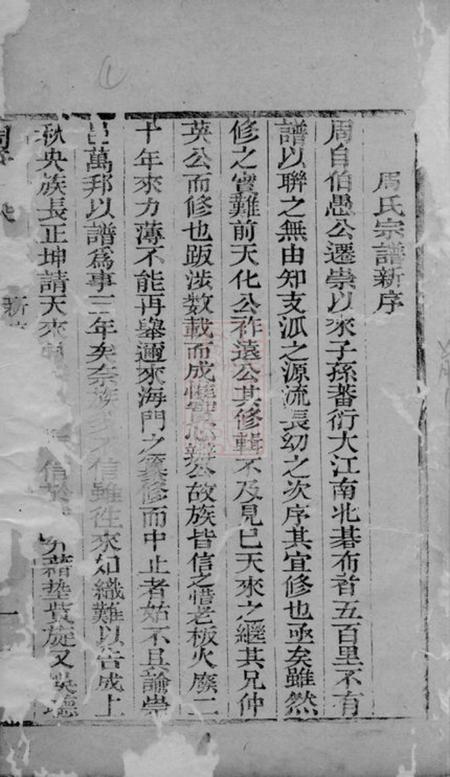 周氏宗譜新序
周自伯愚公遷崇以來子孫蕃衍大江南北碁布首五百里不有
譜以聯之無由知支泒之源流長幼之次序其宜修也亟矣雖然
修之實難前天化公祚遠公其修輯不及見巳天來之繼其兄仲
英公而修也跋涉数載而成心辦公故族皆信之惜老板火廢二
十年來力薄不能再舉邇來海門之冀修而中止者姑不具論崇
邑萬邦以譜爲事三年矣奈族信雖徃來如織難以告成上
秋央族長正坤請天來信藉墊貲旋又
新
一